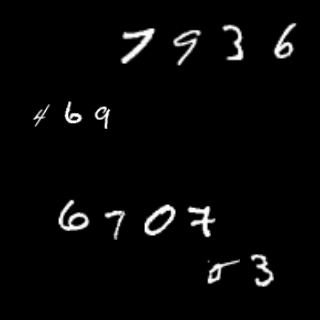 7936
469
6707
53